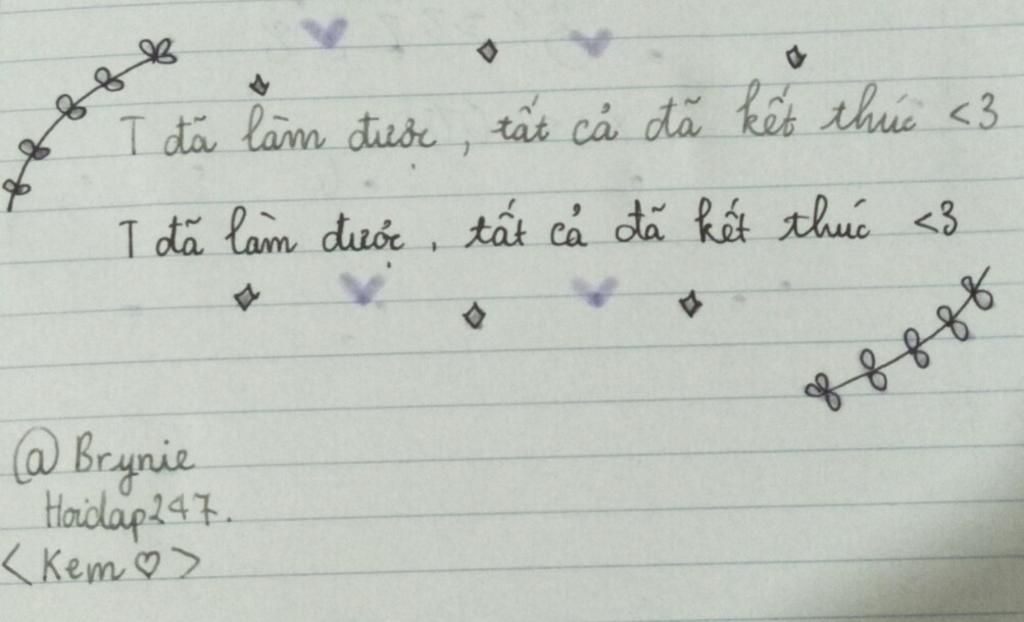 T đã làm được, tất cả đã kết thúc <3
T đã làm được, tất cả đã kết thúc <3
@Brynie
Hoidap247.
<Kem ♡>